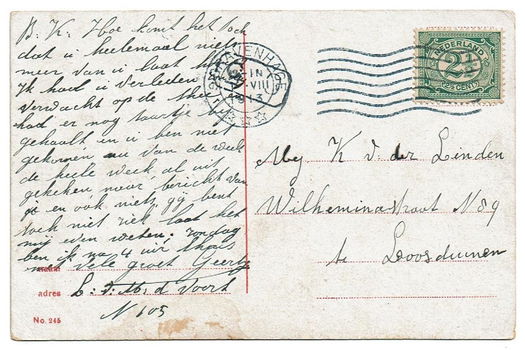 B. K. Hoe komt het toch
dat u heelemaal niets
meer van u laat
Ik had u verleden
verwacht op de thee
had er nog taartje bij
gehaald en u ben niet
gekomen nu van de week
de heele week al uit
gekeken naar bericht van
je en ook niets, gij bent
toch niet ziek laat het
mij even weten. Zondag
ben ik na 4 uur thuis
vele groet Geertje
adres L. v. d. Voort
N 105
No. 245
'S GRAVENHAGE
VIII
13
NEDERLAND
2½
CENT
Mej K v. der Linden
Wilhelminastraat N 89
te Loosduinen